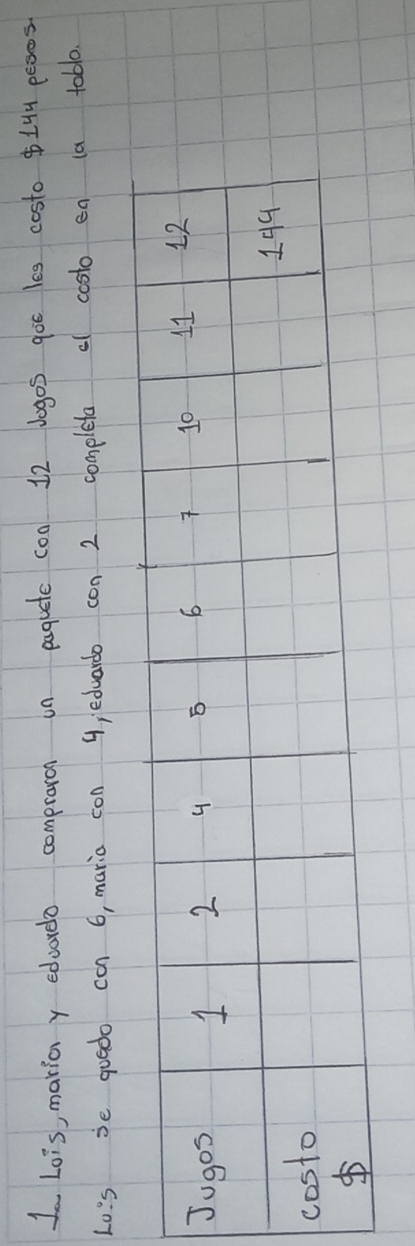 1. Lois, marion y eduardo compraron un paquete con 12 Jugos que les costo $144 pesos.
Luis se quedo con 6, maria con 4, eduardo con 2 completa el costo en la tabla.
Jugos 1 2 4 5 6 7 10 11 12
costo $ 144